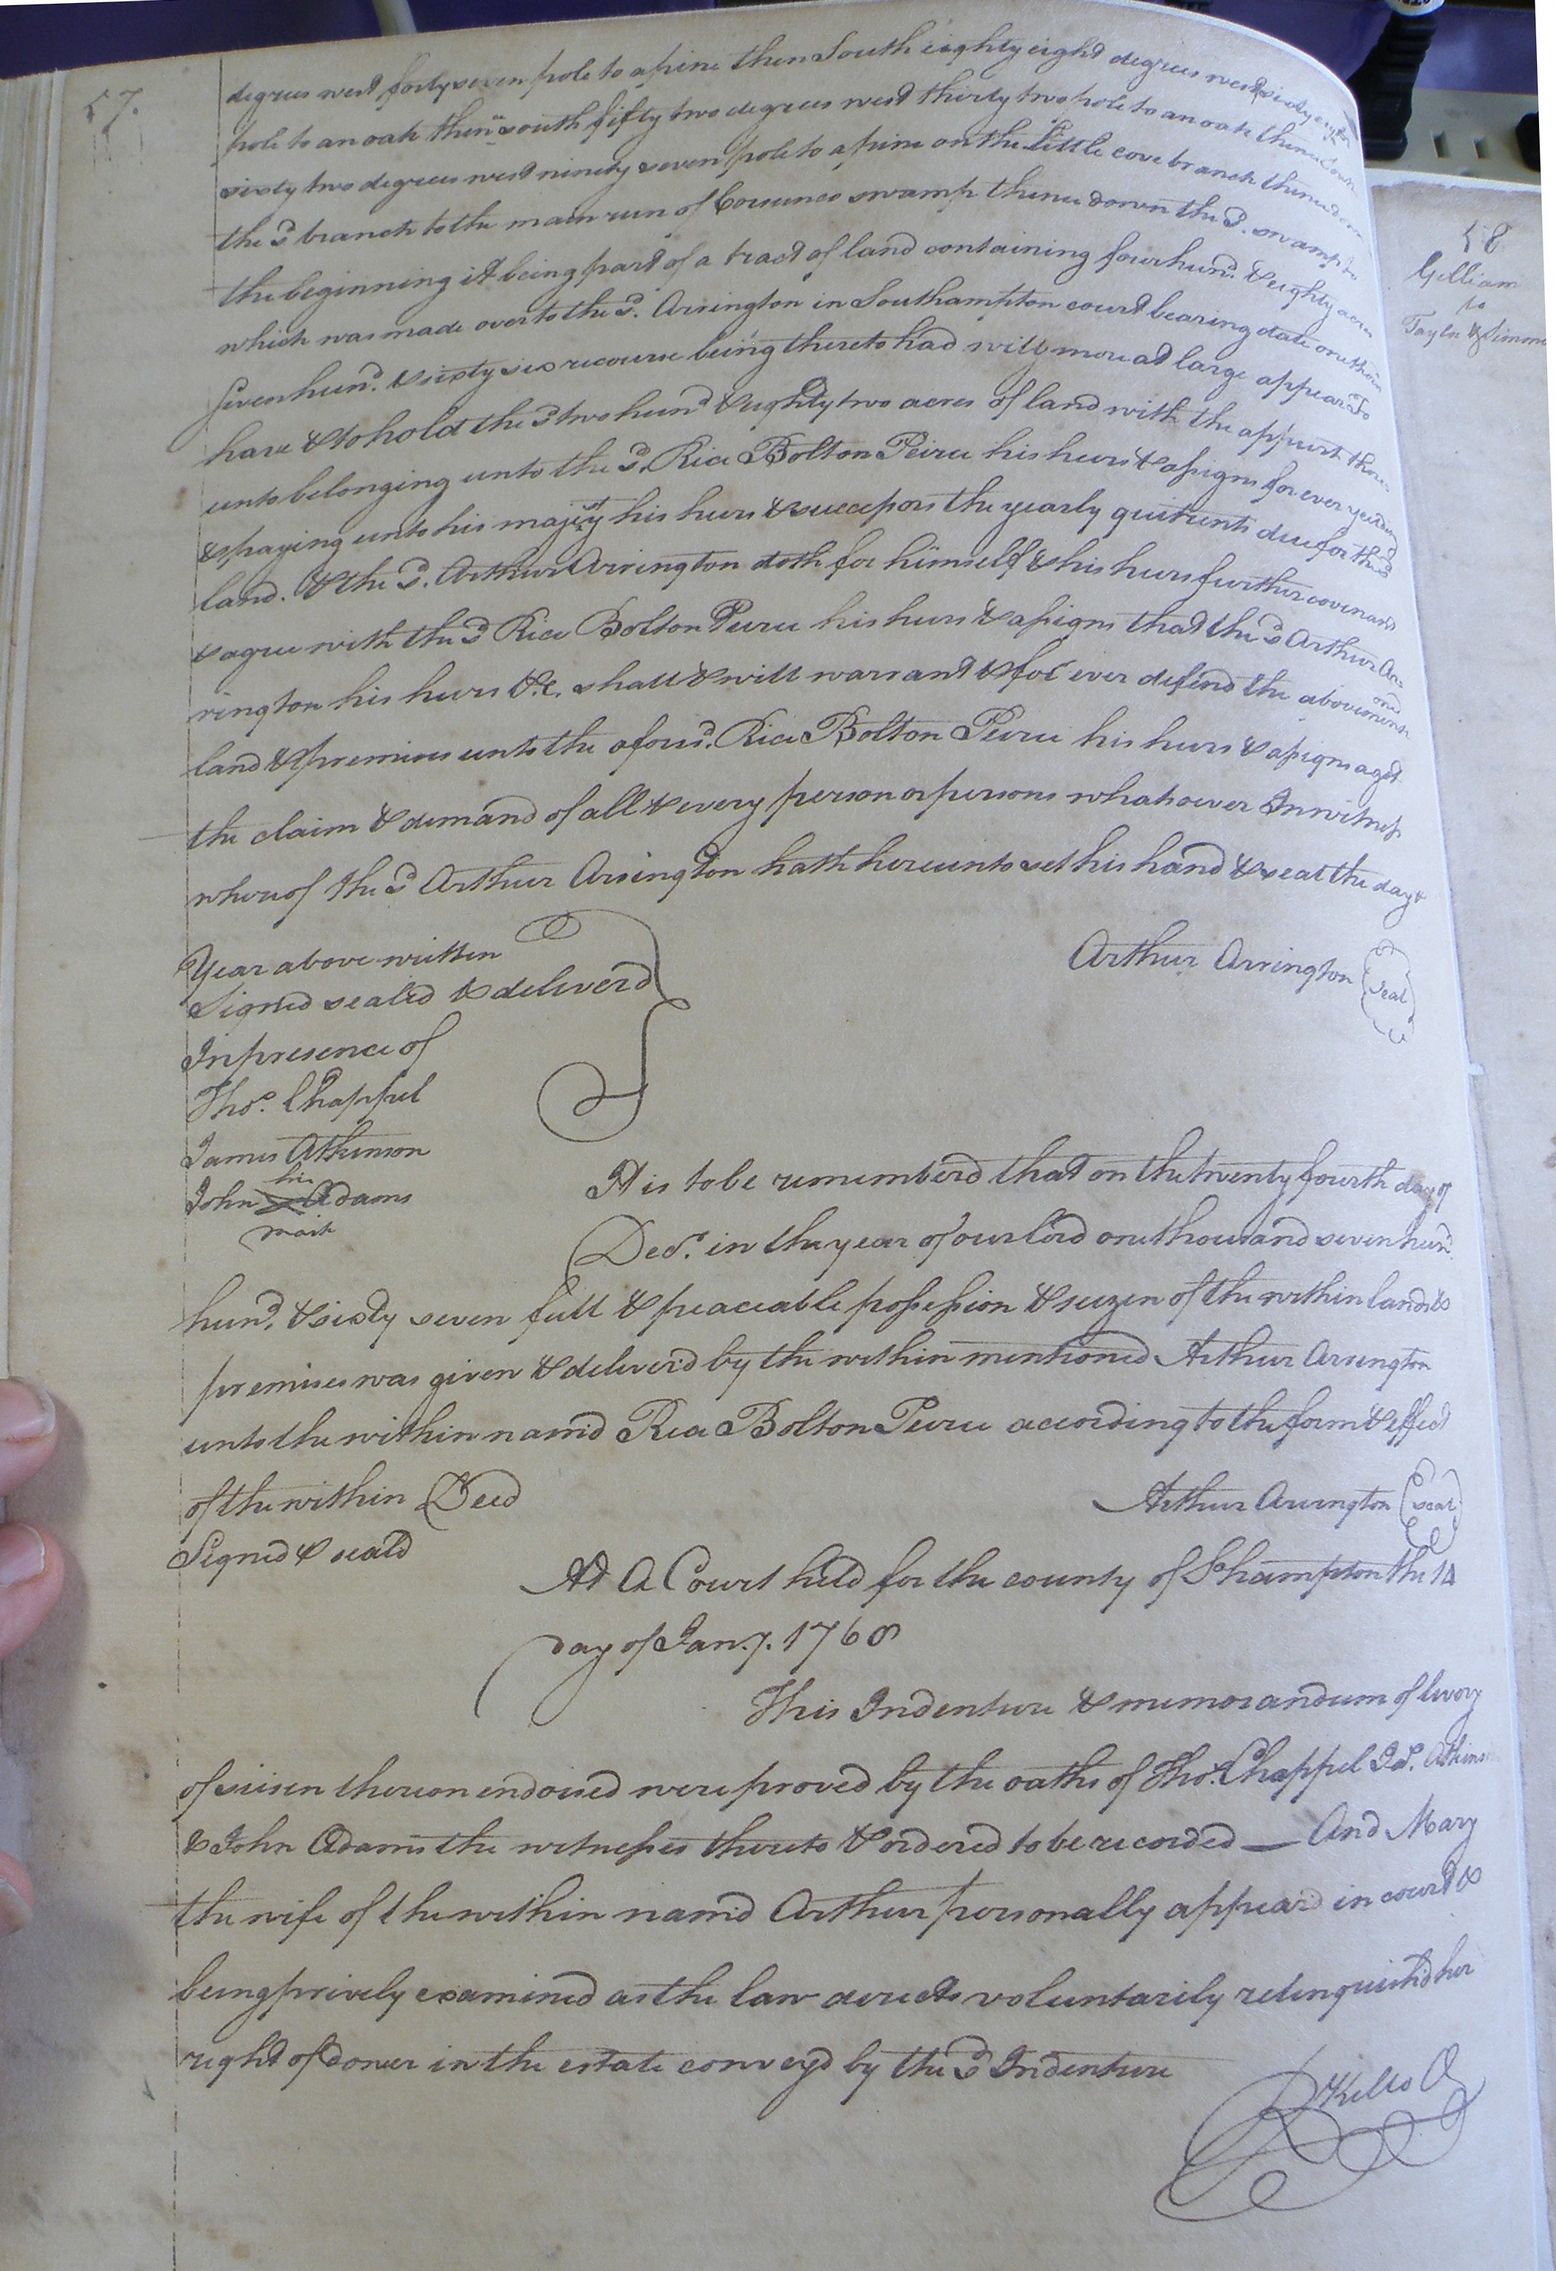 57.
degrees west forty seven pole to a pine then South eighty eight degrees west sixty eight
pole to an oak then south fifty two degrees west thirty two pole to an oak thence down
sixty two degrees west ninety seven pole to a pine on the little cove branch thence down
the sd branch to the main run of swamp thence down the sd. swamp to
the beginning it being part of a tract of land containing four hund. & eighty acres
which was made over to the sd. Arrington in Southampton court bearing date one thou
seven hund. & sixty six recourse being thereto had will more at large appear To
have & to hold the sd two hund & eighty two acres of land with the appurt there
unto belonging unto the sd. Rice Bolton Peirce his heirs & assigns for ever yeilding
& paying unto his majesty his heirs & successors the yearly quitrents due for the sd
land. & the sd. Arthur Arrington doth for himself & his heirs further covenant
& agree with the sd Rice Bolton Peirce his heirs & assigns that the sd Arthur Ar=
rington his heirs &c. shall & will warrant & for ever defend the abovemensioned
land & premises unto the afores'd. Rice Bolton Peirce his heirs & assigns agst
the claim & demand of all & every person or persons whatsoever In witness
whereof the sd Arthur Arrington hath hereunto set his hand & seal the day &
Year above written
Arthur Arrington (seal)
Signed sealed & deliver'd
In presence of
Thos. Chappel
James Atkinson
John his X mark Adams
It is to be rememberd that on the twenty fourth day of
Decr. in the year of our lord one thousand seven hund
hund. & sixty seven full & peaceable possession & seizen of the within lands &
premises was given & deliverd by the within mentioned Arthur Arrington
unto the within namd Rice Bolton Peirce according to the form & effect
of the within Deed
Arthur Arrington (seal)
Signed & seald
At A Court held for the county of Sohampton the 14
day of Jany. 1768
This Indenture & memorandum of livery
of seisen thereon endorsed were proved by the oaths of Thos. Chappel Jas. Atkinson
& John Adams the witnesses thereto & ordered to be recorded — And Mary
the wife of the within namd Arthur personally appeard in court &
being privily examined as the law directs voluntarily relinquishd her
right of dower in the estate convey'd by the sd Indenture
R Kello
58
Gilliam
to
Taylor & Simmons